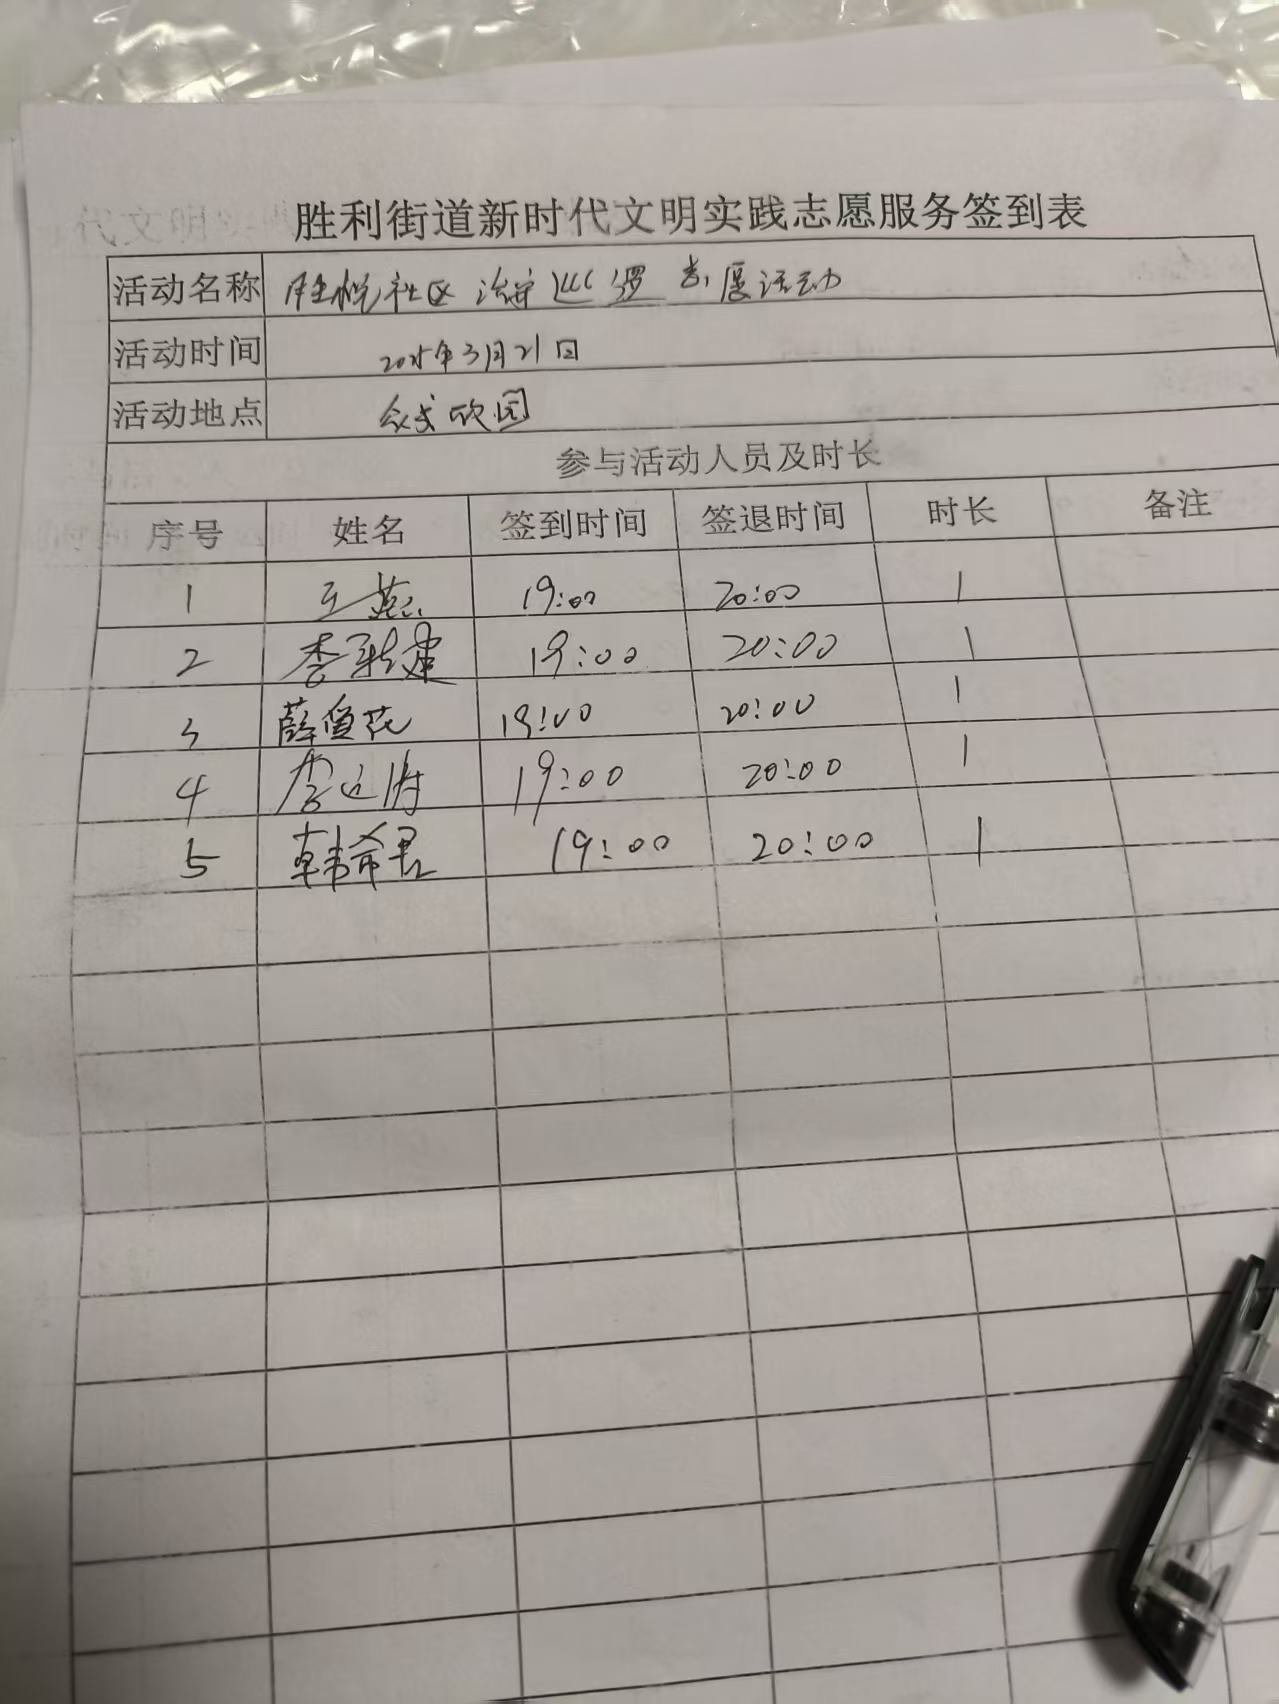 胜利街道新时代文明实践志愿服务签到表
活动名称 胜悦社区治安巡逻志愿活动
活动时间 2025年3月21日
活动地点 欣园
参与活动人员及时长
序号 姓名 签到时间 签退时间 时长 备注
1 王燕 19:00 20:00 1
2 李新建 19:00 20:00 1
3 薛爱花 19:00 20:00 1
4 李 19:00 20:00 1
5 韩希君 19:00 20:00 1